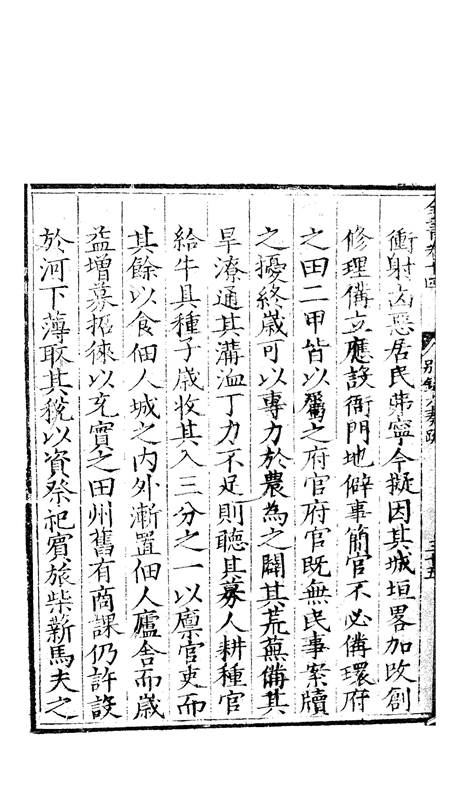 全書卷十四 別錄 奏疏 三十五
衝射凶惡居民弗寧今擬因其城垣畧加改創
修理備立應設衙門地僻事簡官不必備環府
之田二甲皆以屬之府官府官既無民事案牘
之擾終歲可以專力於農為之闢其荒蕪備其
旱潦通其溝洫丁力不足則聽其募人耕種官
給牛具種子歲收其入三分之一以廪官吏而
其餘以食佃人城之内外漸置佃人廬舎而歲
益增募招徠以充實之田州舊有商課仍許設
於河下薄取其稅以資祭祀賓旅柴薪馬夫之